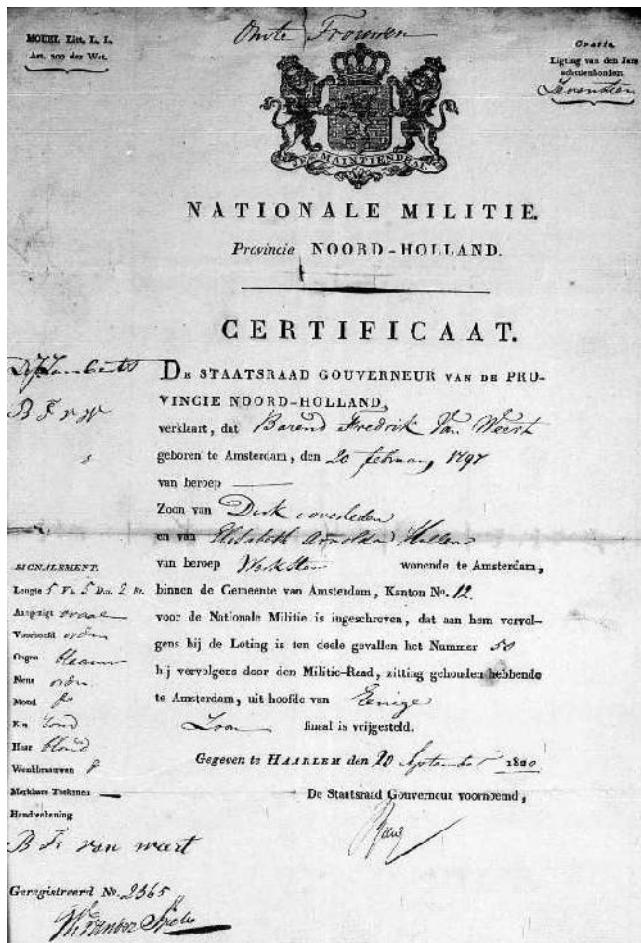 MODEL Litt. L. L.
Art. 200 der Wet.
Omte Trouwen
Gratis
Ligting van den Jare
achttienhonderd
Zeventien
JE MAINTIENDRAI
NATIONALE MILITIE.
Provincie NOORD-HOLLAND.
CERTIFICAAT.
DE STAATSRAAD GOUVERNEUR VAN DE PRO-
VINCIE NOORD-HOLLAND,
verklaart, dat Barend Fredrik Van Weert
geboren te Amsterdam, den 20 februarij 1797
van beroep
Zoon van Dirk overleden
en van Elisabeth Arnolda
van beroep wonende te Amsterdam,
binnen de Gemeente van Amsterdam, Kanton No. 12
voor de Nationale Militie is ingeschreven, dat aan hem vervol-
gens bij de Loting is ten deele gevallen het Nummer 50
hij vervolgens door den Militie-Raad, zitting gehouden hebbende
te Amsterdam, uit hoofde van Eenige
Zoon finaal is vrijgesteld.
Gegeven te HAARLEM den 20 September 1820
De Staatsraad Gouverneur voornoemd,
B F v W
SIGNALEMENT.
Lengte 5 Vt. 5 Dm. 2 St.
Aangezigt ovaal
Voorhoofd orden
Oogen blaauw
Neus orden
Mond
Kin rond
Haar blond
Wenkbraauwen
Merkbare Teekenen
Handteekening
B F van weert
Geregistreerd No. 2365